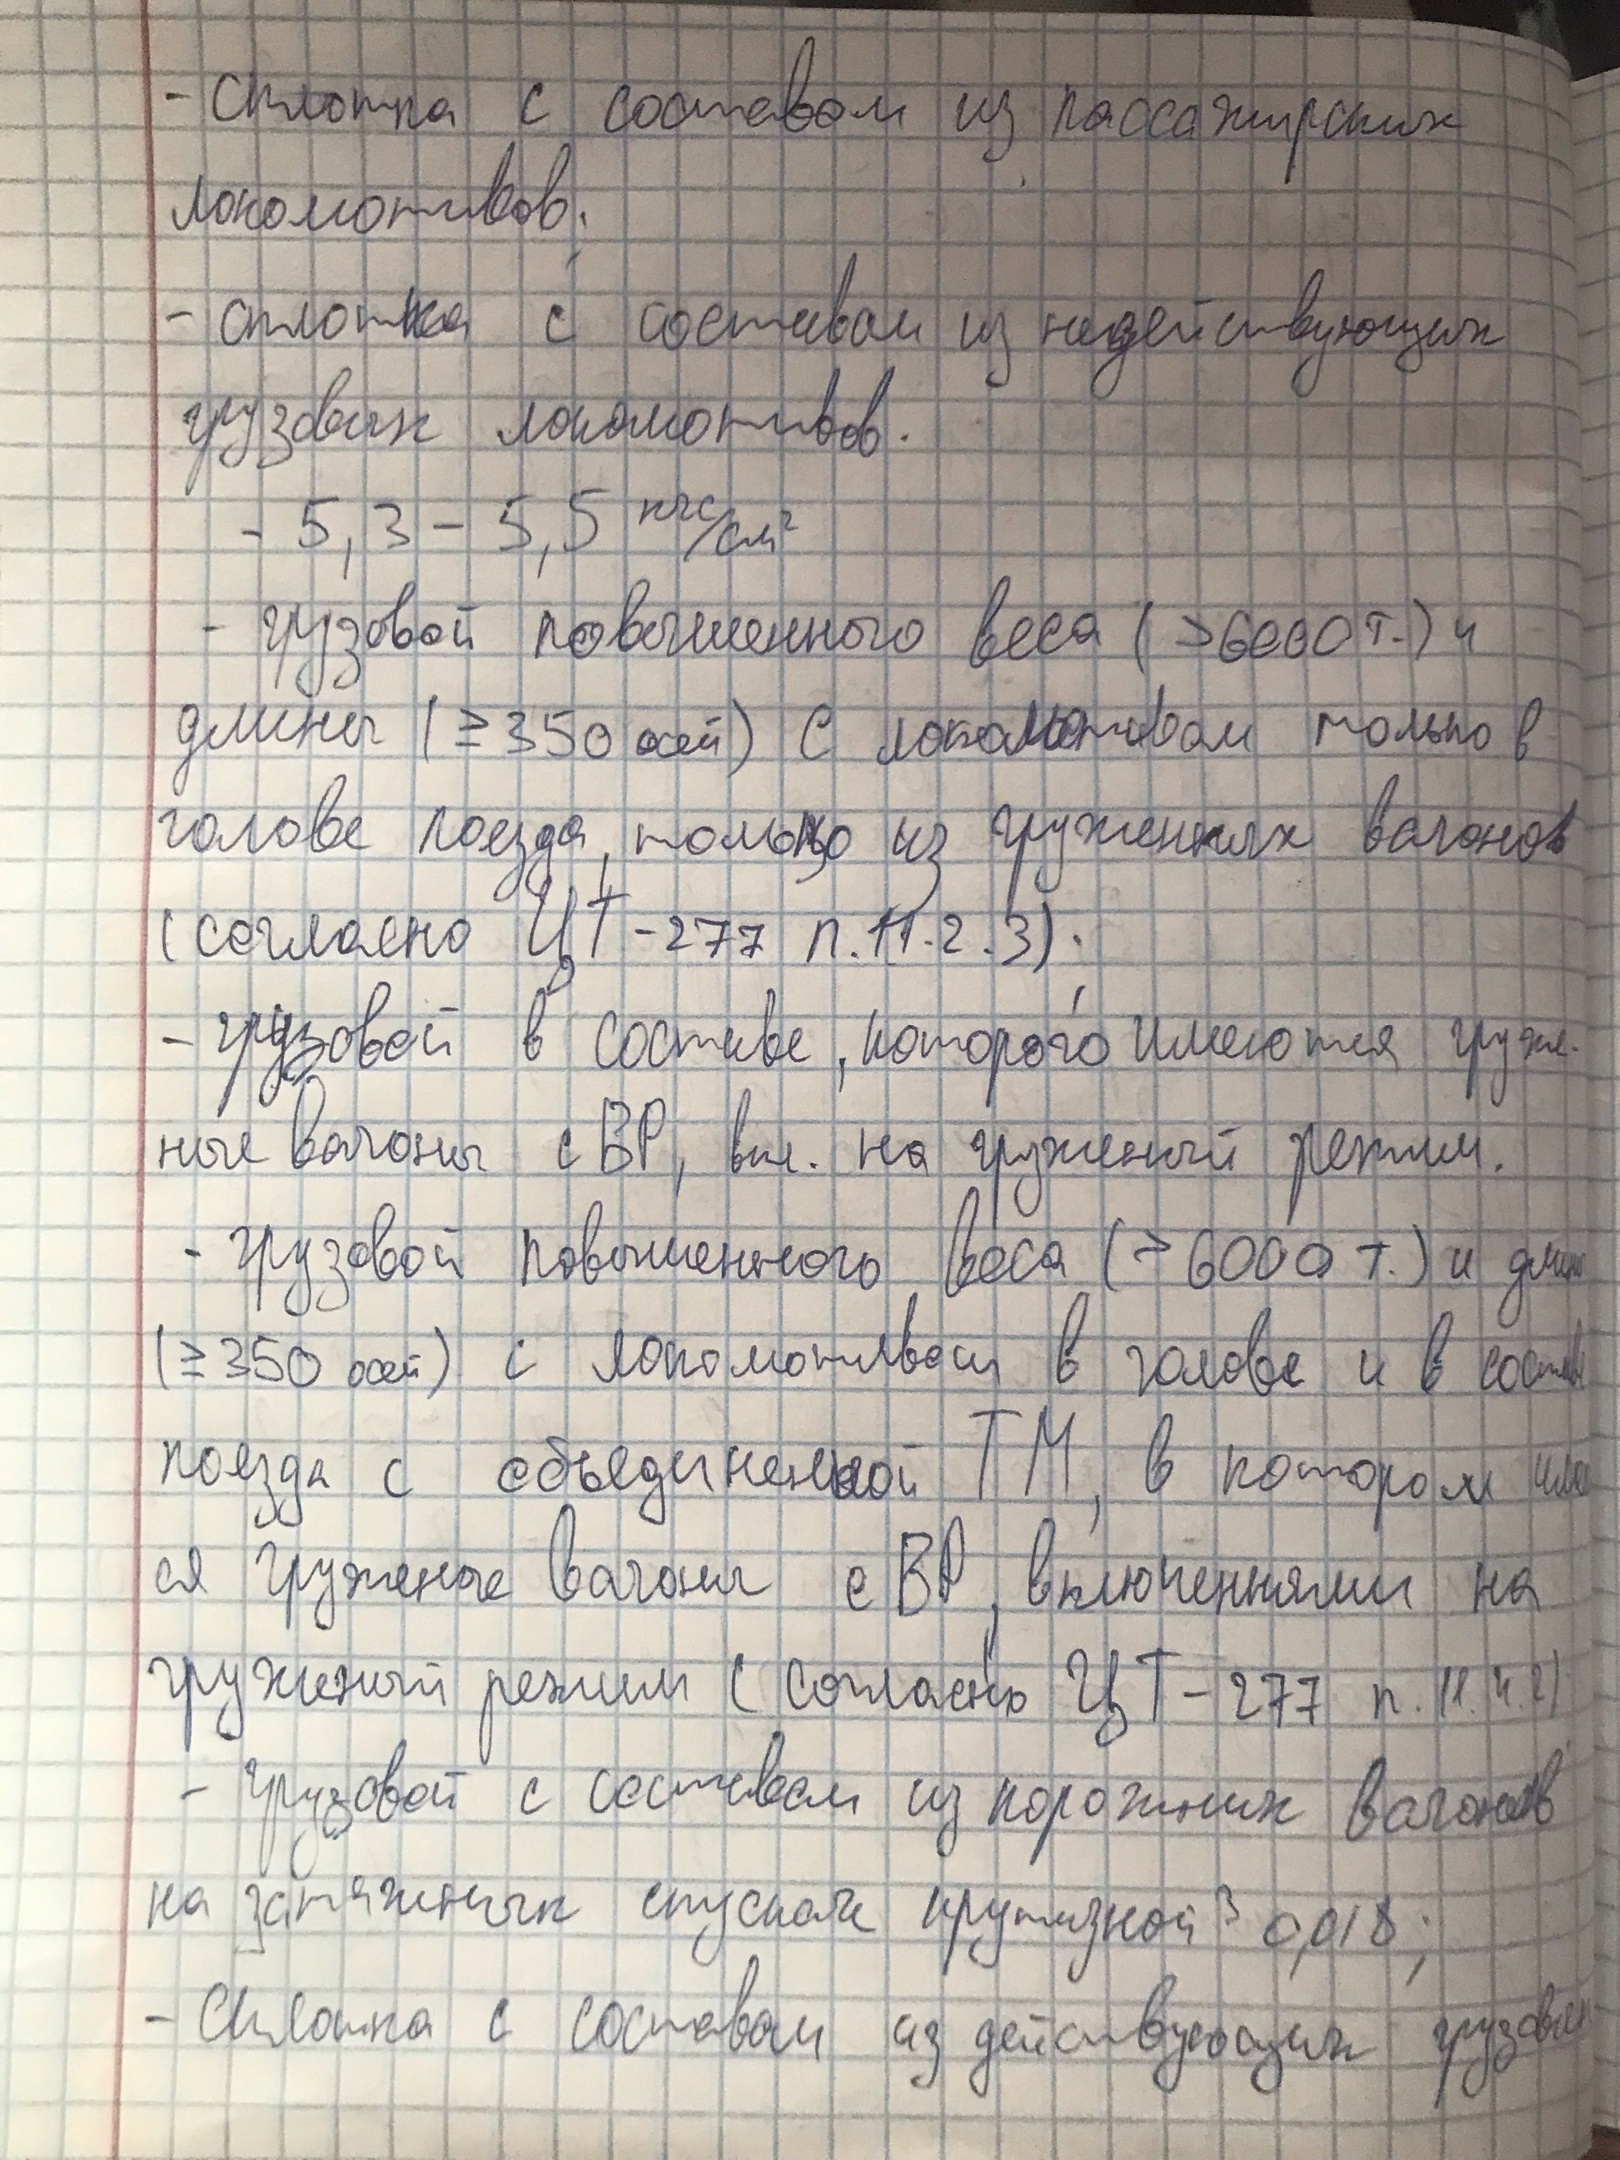 - Сплотка с составом из пассажирских
локомотивов;
- сплотка с составом из недействующих
грузовых локомотивов.
- 5,3 - 5,5 кгс/см²
- грузовой повышенного веса (>6000 т.) и
длины (≥350 осей) с локомотивом только в
голове поезда, только из груженных вагонов
(согласно ЦТ-277 п.11.2.3);
- грузовой в составе, которого имеются груже-
ные вагоны с ВР, вкл. на груженый режим.
- грузовой повышенного веса (>6000 т.) и длины
(≥350 осей) с локомотивом в голове и в составе
поезда с объединенной ТМ, в котором
ся груженые вагоны с ВР, включенными на
груженый режим (согласно ЦТ-277 п.11.4.2)
- грузовой с составом из порожних вагонов
на затяжных спусках крутизной ³ 0,018;
- Сплотка с составом из действующих грузовых